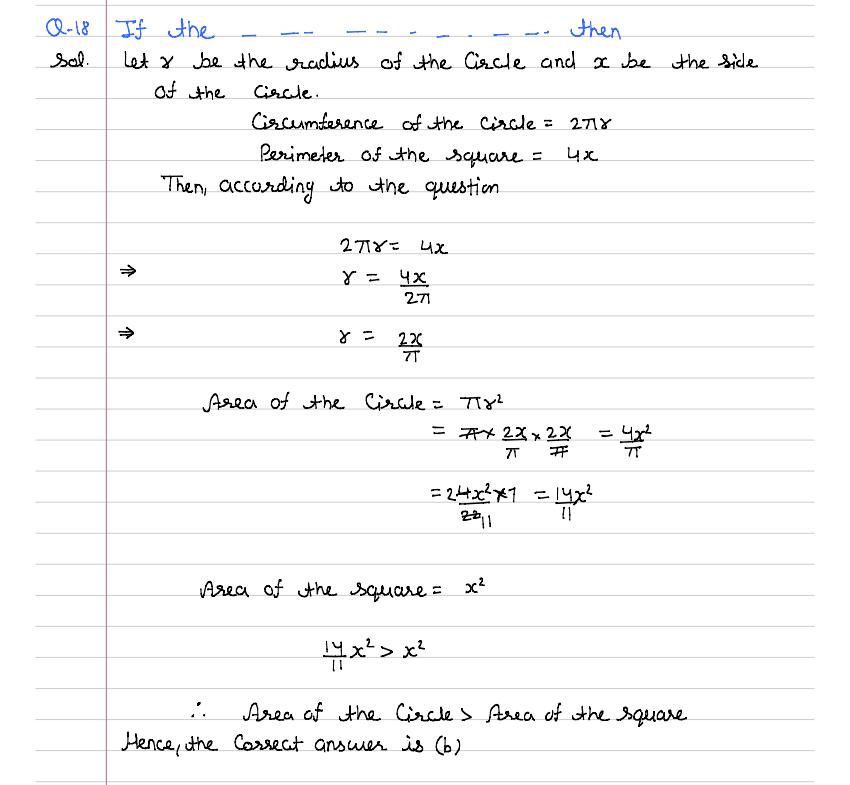 Q-18 If the _ _ _ _ _ _ _ _ _ _ then
Sol. Let r be the radius of the Circle and x be the side
of the Circle.
Circumference of the circle = 2πr
Perimeter of the square = 4x
Then, according to the question
2πr = 4x
⇒ r = 4x/2π
⇒ r = 2x/π
Area of the Circle = πr²
= π × 2x/π × 2x/π = 4x²/π
= 4x² × 7/22 = 14x²/11
Area of the square = x²
14/11 x² > x²
∴ Area of the Circle > Area of the square
Hence, the Correct answer is (b)